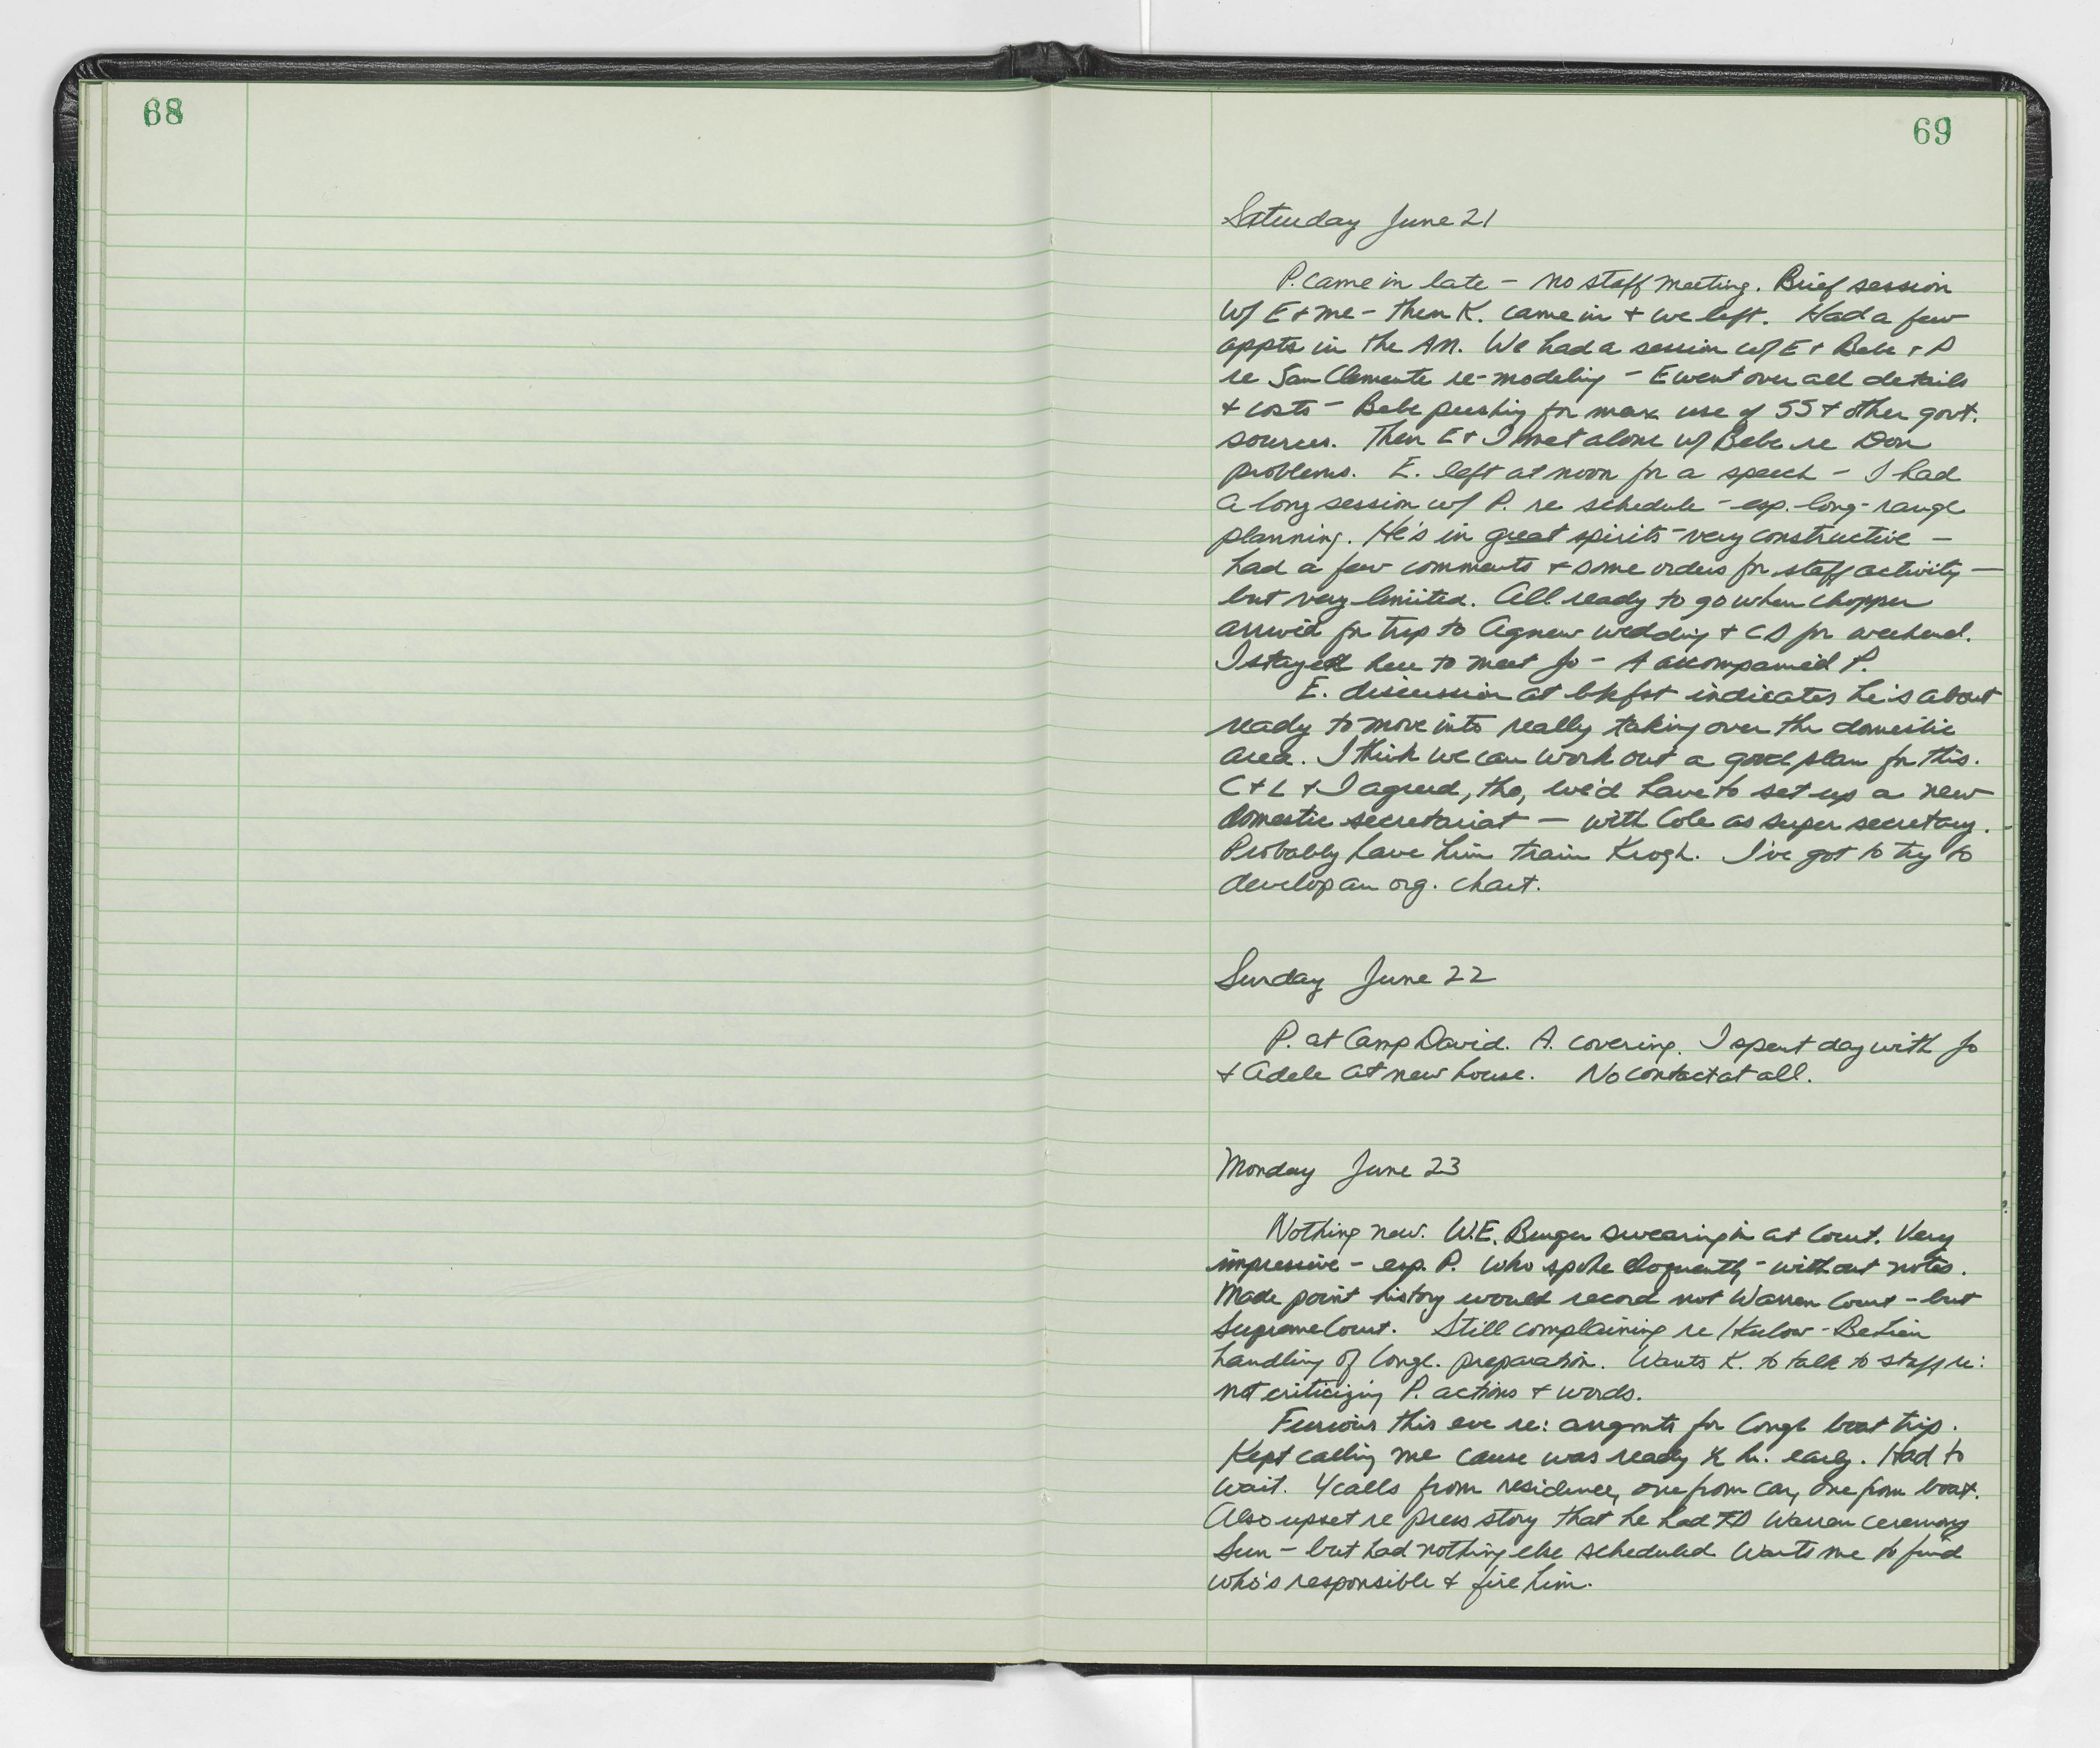 68
69
Saturday June 21
P. came in late – no staff meeting. Brief session
w/ E + me – then K. came in + we left. Had a few
appts in the AM. We had a session w/ E + Bebe + P
re San Clemente re-modeling – E went over all details
+ costs – Bebe pushing for max use of SS + other govt.
sources. Then E + I met alone w/ Bebe re Don
problems. E. left at noon for a speech – I had
a long session w/ P. re schedule – esp. long-range
planning. He's in great spirits – very constructive –
had a few comments + some orders for staff activity –
but very limited. All ready to go when chopper
arrived for trip to Agnew wedding + CD for weekend.
I stayed here to meet Jo – A accompanied P.
E. discussion at bkfst indicates he's about
ready to move into really taking over the domestic
area. I think we can work out a good plan for this.
C + L + I agreed, tho, we'd have to set up a new
domestic secretariat – with Cole as super secretary.
Probably have him train Krogh. I've got to try to
develop an org. chart.
Sunday June 22
P. at Camp David. A. covering. I spent day with Jo
+ Adele at new house. No contact at all.
Monday June 23
Nothing new. W.E. Burger swearing in at Court. Very
impressive – esp. P. who spoke eloquently – without notes.
Made point history would record not Warren Court – but
Supreme Court. Still complaining re Harlow - BeLieu
handling of Congl. preparation. Wants K. to talk to staff re:
not criticizing P. actions + words.
Furious this eve re: arrgmts for Congl boat trip.
Kept calling me cause was ready ½ hr. early. Had to
wait. 4 calls from residence, one from car, one from boat.
Also upset re press story that he had TD Warren ceremony
Sun – but had nothing else scheduled Wants me to find
who's responsible + fire him.